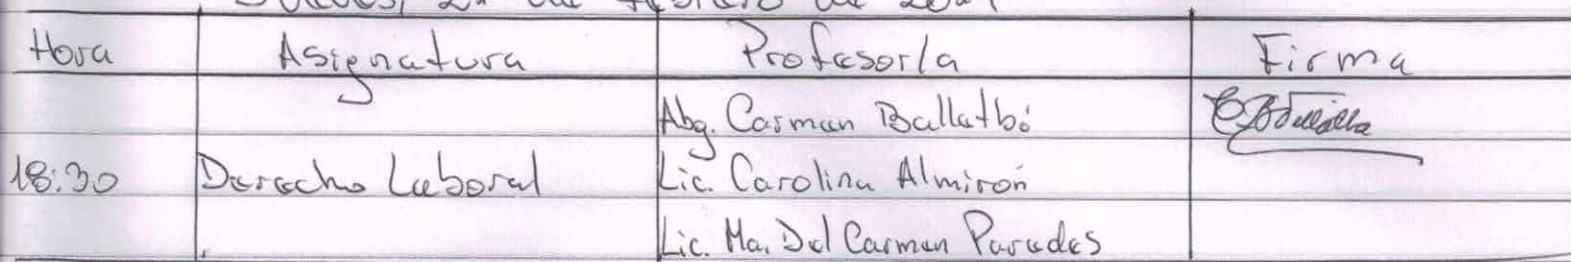 Hora Asignatura Profesor/a Firma
Abg. Carmen Ballatbó
18:30 Derecho Laboral Lic. Carolina Almirón
Lic. Ma. Del Carmen Paredes